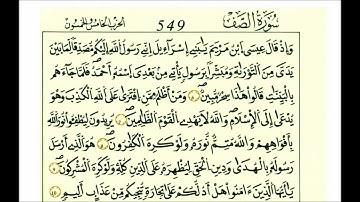 سُورَةُ الصَّفِّ 549 الحزب الخامس والخمسون
وَإِذْ قَالَ عِيسَى ابْنُ مَرْيَمَ يَٰبَنِي إِسْرَآءِيلَ إِنِّي رَسُولُ اللَّهِ إِلَيْكُم مُّصَدِّقًا لِّمَا بَيْنَ
يَدَيَّ مِنَ التَّوْرَىٰةِ وَمُبَشِّرًا بِرَسُولٍ يَأْتِي مِنْ بَعْدِيَ اسْمُهُ أَحْمَدُ فَلَمَّا جَآءَهُم
بِالْبَيِّنَٰتِ قَالُوا هَٰذَا سِحْرٌ مُّبِينٌ ٦ وَمَنْ أَظْلَمُ مِمَّنِ افْتَرَىٰ عَلَى اللَّهِ الْكَذِبَ وَهُوَ
يُدْعَىٰ إِلَى الْإِسْلَٰمِ وَاللَّهُ لَا يَهْدِي الْقَوْمَ الظَّٰلِمِينَ ٧ يُرِيدُونَ لِيُطْفِـُٔوا نُورَ اللَّهِ
بِأَفْوَٰهِهِمْ وَاللَّهُ مُتِمٌّ نُورَهُ وَلَوْ كَرِهَ الْكَٰفِرُونَ ٨ هُوَ الَّذِي أَرْسَلَ
رَسُولَهُ بِالْهُدَىٰ وَدِينِ الْحَقِّ لِيُظْهِرَهُ عَلَى الدِّينِ كُلِّهِ وَلَوْ كَرِهَ الْمُشْرِكُونَ ٩
يَٰأَيُّهَا الَّذِينَ ءَامَنُوا هَلَ أَدُلُّكُمْ عَلَىٰ تِجَٰرَةٍ تُنجِيكُم مِّنْ عَذَابٍ أَلِيمٍ ١٠